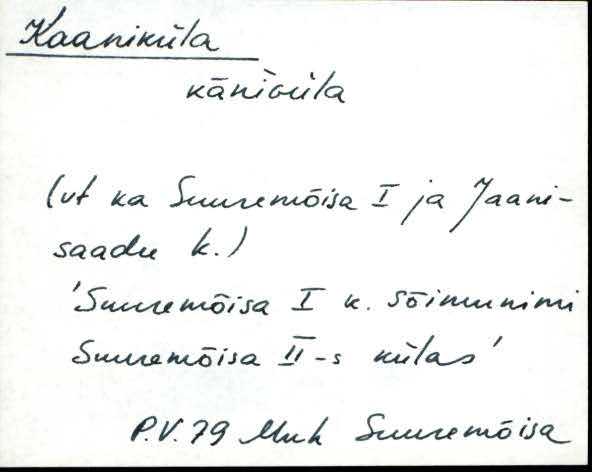 Kaaniküla
känìǜla
(vt ka Suuremõisa I ja Jaani-
saadu k.)
'Suuremõisa I k. sõimunimi
Suuremõisa II-s külas'
P.V.79 Muh Suuremõisa